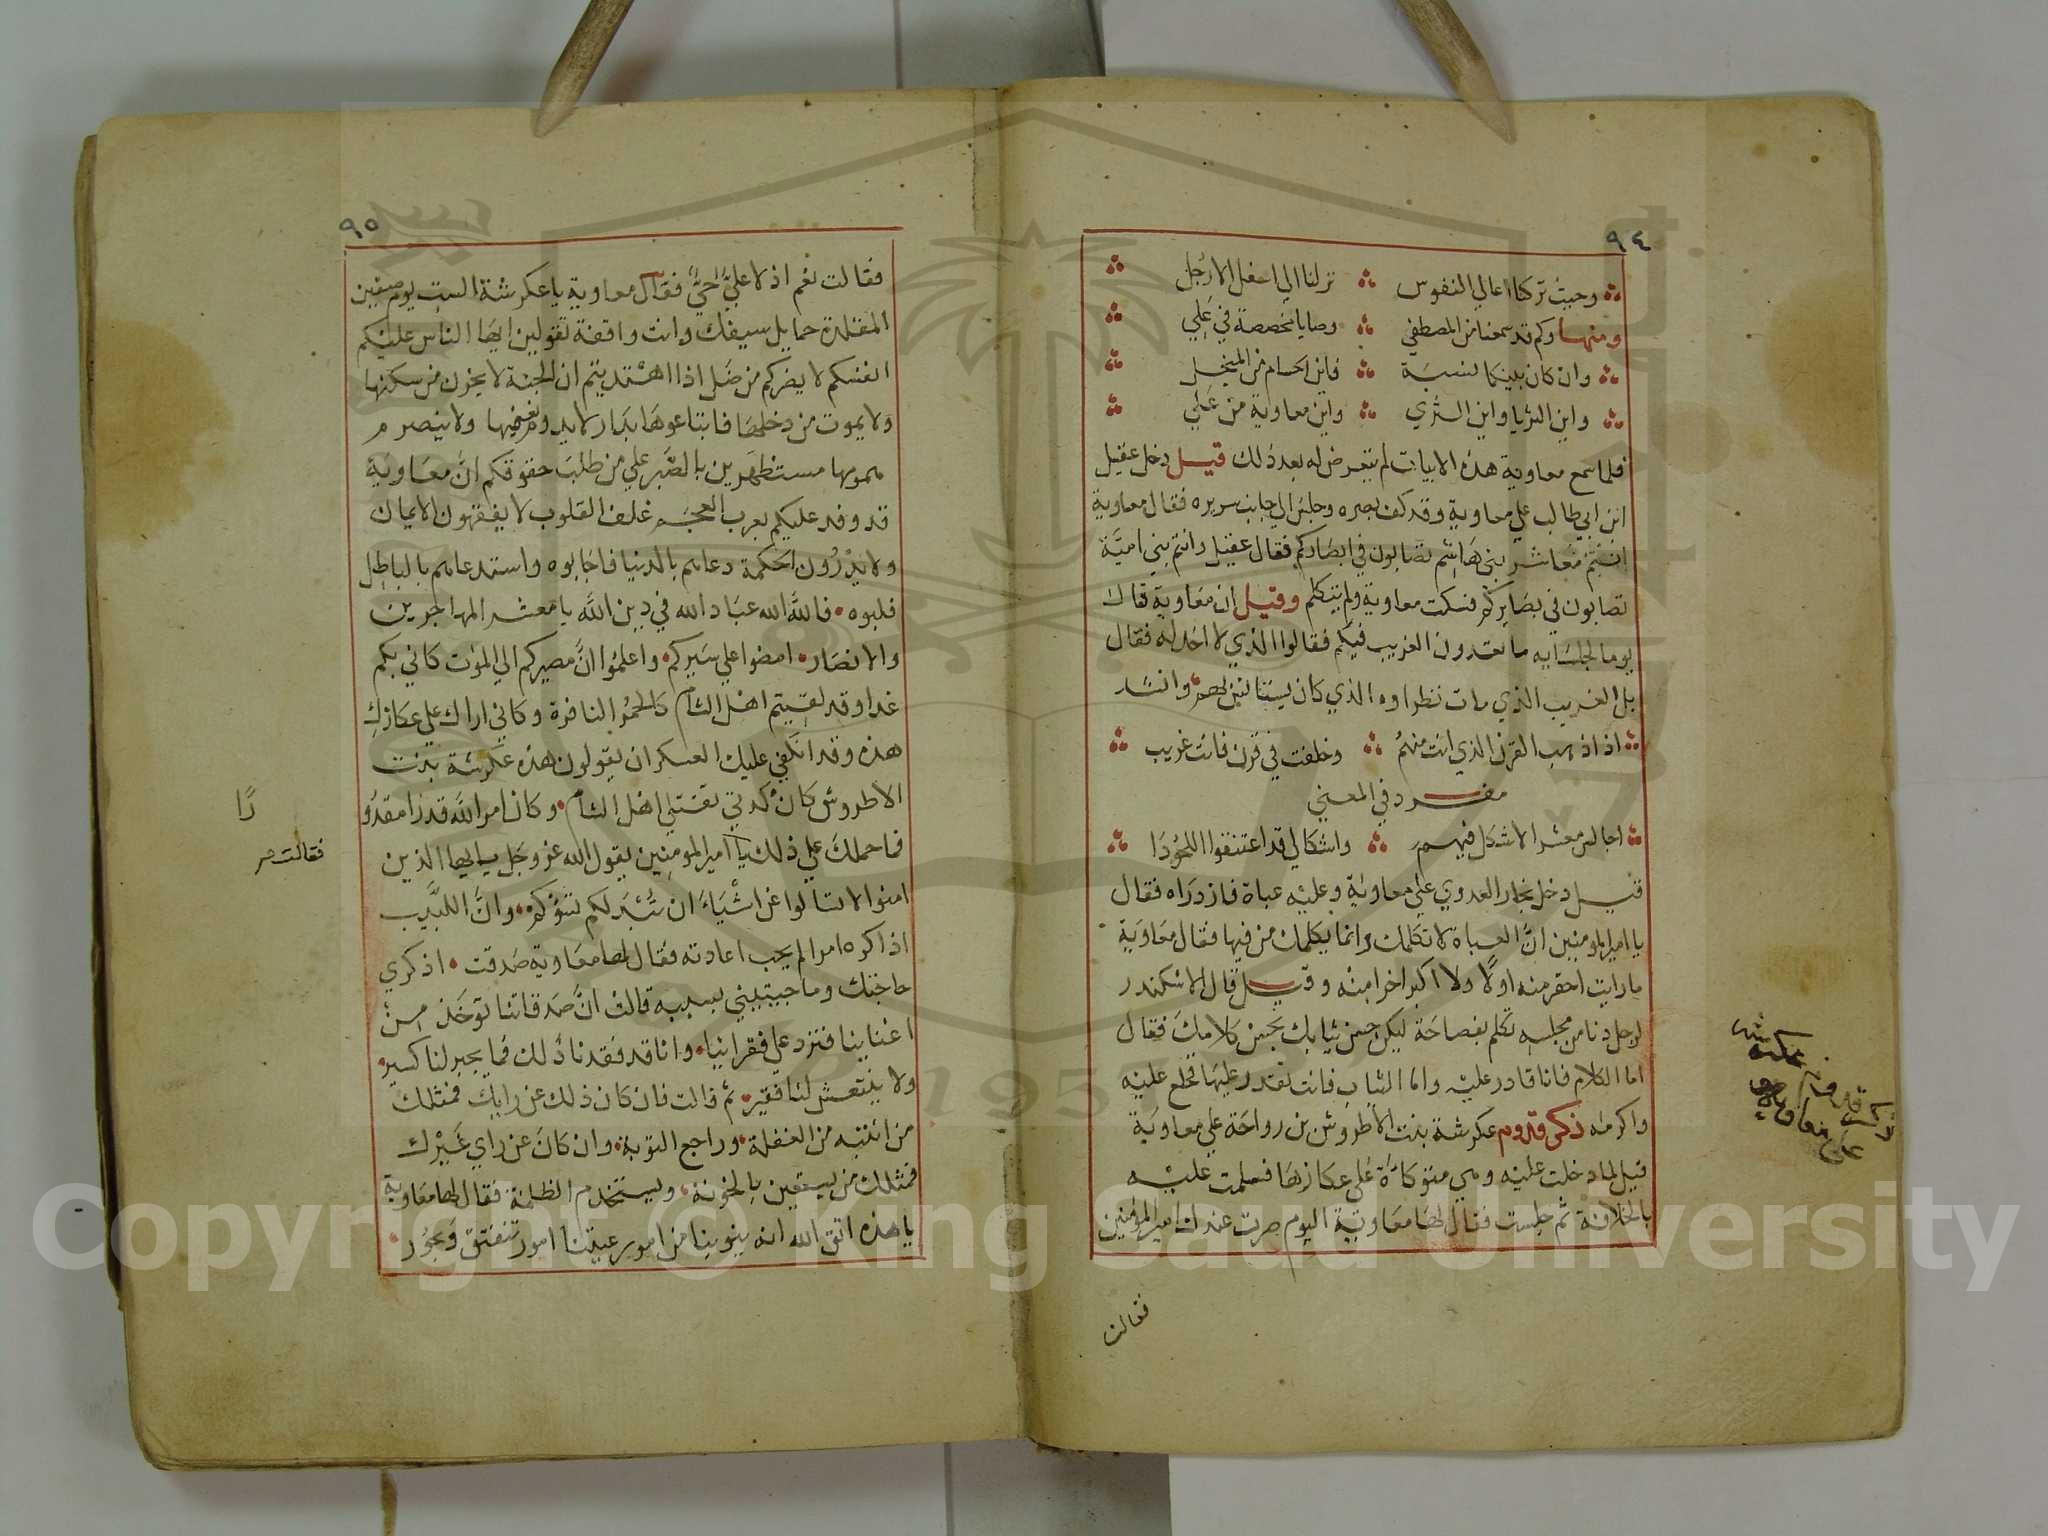 ٩٤
وحيث تركنا اعالي النفوس ∴ نزلنا الي اسفل الارجل
ومنها وكم قد سمعنا من المصطفي ∴ وصايا مخصصة في علي
وان كان بينكما نسبة ∴ فاين الحسام من المنجل
واين الثريا واين الثري ∴ واين معاوية من علي
فلما سمع معاوية هذه الابيات لم يتعرض له بعد ذلك قيل دخل عقيل
ابن ابي طالب علي معاوية وقد كف بصره وجلس الي جانب سريره فقال معاوية
انتم معاشر بني هاشم تصابون في ابصاركم فقال عقيل وانتم بني امية
تصابون في بصايركم فسكت معاوية ولم يتكلم وقيل ان معاوية قال
يوما لجلسايه ما تعدون الغريب فيكم فقالوا الذي لا احد له فقال
بل الغريب الذي مات نظراوه الذي كان يستانس بهم وانشد
اذا ذهب القرن الذي انت منهم ∴ وخلفت في قرن فانت غريب
مفرد في المعني
اجالس معشرا لا شكل فيهم ∴ واشكالي قد اعتنقوا اللحودا
قيل دخل نجار العدوي علي معاوية وعليه عباة فازدراه فقال
يا امير المومنين ان العباة لا تكلمك وانما يكلمك من فيها فقال معاوية
ما رايت احقر منه اولا ولا اكبر اخرا منه وقيل قال الاسكندر
لرجل دنا من مجلسه تكلم بفصاحة ليكن حسن ثيابك بحسن كلامك فقال
اما الكلام فانا قادر عليه واما الثياب فانت تقدر عليها فخلع عليه
واكرمه ذكر قدوم عكرشة بنت الاطروش بن رواحة علي معاوية
قيل لما دخلت عليه وهي متوكاة علي عكازها فسلمت عليه
بالخلافة ثم جلست فقال لها معاوية اليوم صرت عندك امير المومنين
فقالت
عكرشه
٩٥
فقالت نعم اذ لا علي حي فقال معاوية يا عكرشة الست يوم صفين
المقلدة حمايل سيفك وانت واقفة تقولين ايها الناس عليكم
انفسكم لا يضركم من ضل اذا اهتديتم ان الجنة لا يحزن من سكنها
ولا يموت من دخلها فابتاعوها بدار لا يدوم نعيمها ولا ينصرم
همومها مستظهرين بالصبر علي من طلب حقوقكم ان معاوية
قد وفد عليكم بعرب العجم غلف القلوب لا يفقهون الايمان
ولا يدرون الحكمة دعاهم بالدنيا فاجابوه واستدعاهم بالباطل
فلبوه فالله الله عباد الله في دين الله يا معشر المهاجرين
والانصار امضوا علي سيركم واعلموا ان مصيركم الي الموت كاني بكم
غدا وقد لقيتم اهل الشام كالحمر النافرة وكاني اراك علي عكازك
هذه وقد انكفي عليك العسكران يقولون هذه عكرشة بنت
الاطروش كان كدتي تقتلي اهل الشام وكان امر الله قدرا مقدو
را
فما حملك علي ذلك يا امير المومنين يقول الله عز وجل يا ايها الذين
فقالت
امنوا لا تسالوا عن اشياء ان تبد لكم تسؤكم وان اللبيب
اذا كره امرا لم يحب اعادته فقال لها معاوية صدقت اذكري
حاجتك وما جيتيني بسببه قالت ان صدقاتنا توخذ من
اغنياينا فترد علي فقراينا وانا قد فقدنا ذلك فما يجبر لنا كسير
ولا ينتعش لنا فقير ثم قالت فان كان ذلك عن رايك فمثلك
من انتبه من الغفلة وراجع التوبة وان كان عن راي غيرك
فمثلك من يستعين بالخونة ويستخدم الظلمة فقال لها معاوية
يا هذه اتق الله انه ينوبنا من امور رعيتنا امور تنفتق وبحور
Copyright © King Saud University
1957